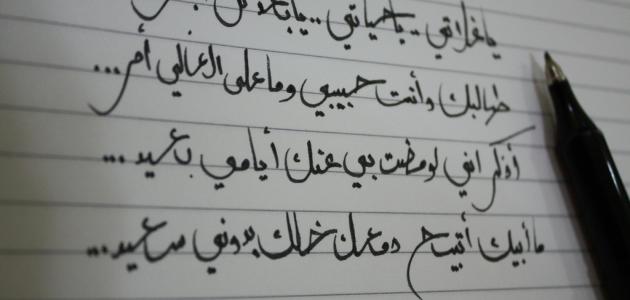 يا غلاتي .. يا حياتي .. يا
طالبك وأنت حبيبي وما على الغالي أمر...
أذكر اني لو مضت بي عنك أيامي بعيد...
ما أبيك أتبيح دمعك خلك بدوني سعيد...